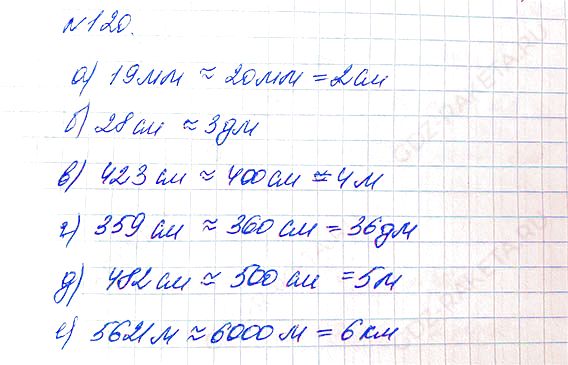 №120.
а) 19мм ≈ 20мм = 2см
б) 28см ≈ 3дм
в) 423см ≈ 400см = 4м
г) 359см ≈ 360см = 36дм
д) 482см ≈ 500см = 5м
е) 5621м ≈ 6000м = 6км
GDZ-RAKETA.RU
GDZ-RAKETA.RU